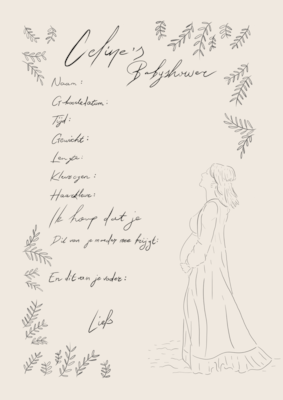 Celine's
Babyshower
Naam:
Geboortedatum:
Tijd:
Gewicht:
Lengte:
Kleur ogen:
Haarkleur:
Ik hoop dat je
Dit van je moeder krijgt:
En dit van je vader:
Liefs